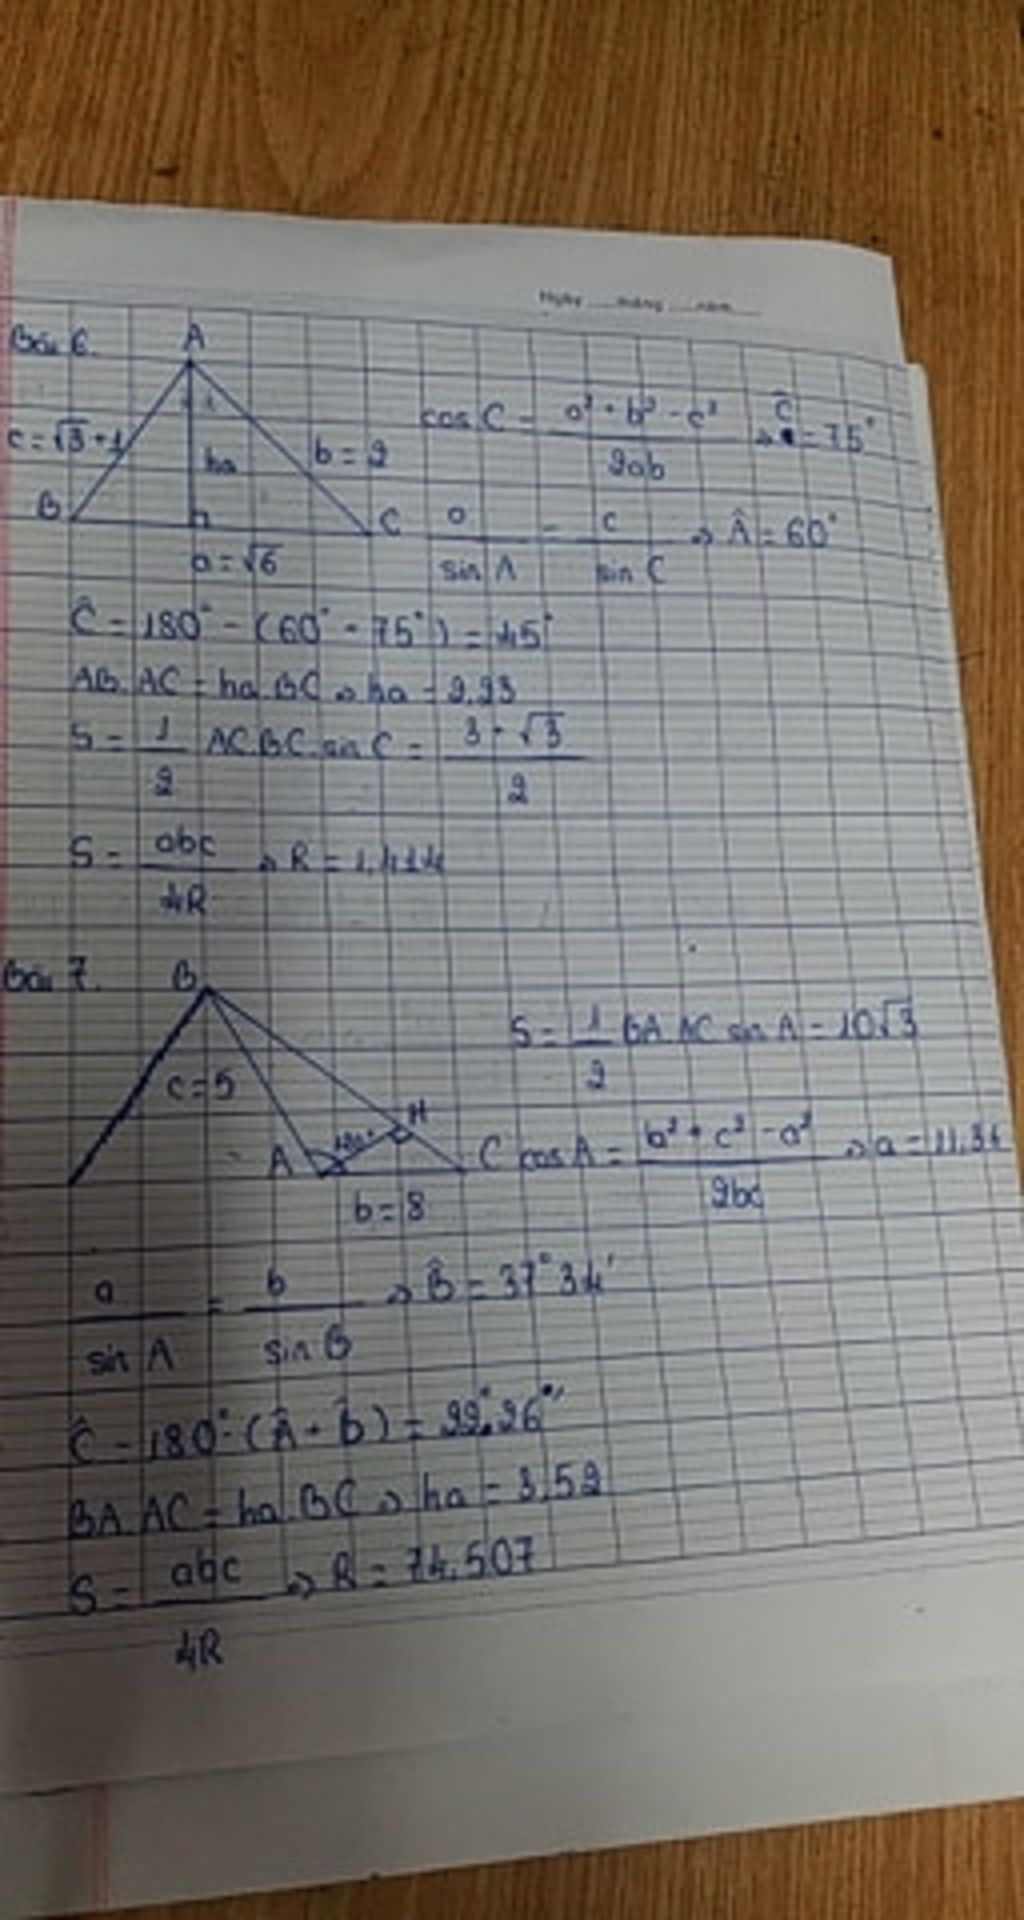 Ngày ... tháng ... năm ...
Bài 6. A
c = √3 + 1
ha
b = 2
B
C
a = √6
cos C = a² + b² - c² / 2ab => Ĉ = 75°
a / sin A = c / sin C => Â = 60°
Ĉ = 180° - (60° + 75°) = 45°
AB. AC = ha. BC => ha = 2,23
S = 1/2 AC. BC. sin C = 3 + √3 / 2
S = abc / 4R => R = 1,414
Bài 7. B
c = 5
H
A
C
b = 8
S = 1/2 BA. AC. sin A = 10√3
cos A = b² + c² - a² / 2bc => a = 11,36
a / sin A = b / sin B => B̂ = 37°34'
Ĉ = 180° - (Â + b̂) = 22°26'
BA. AC = ha. BC => ha = 3,52
S = abc / 4R => R = 74,507